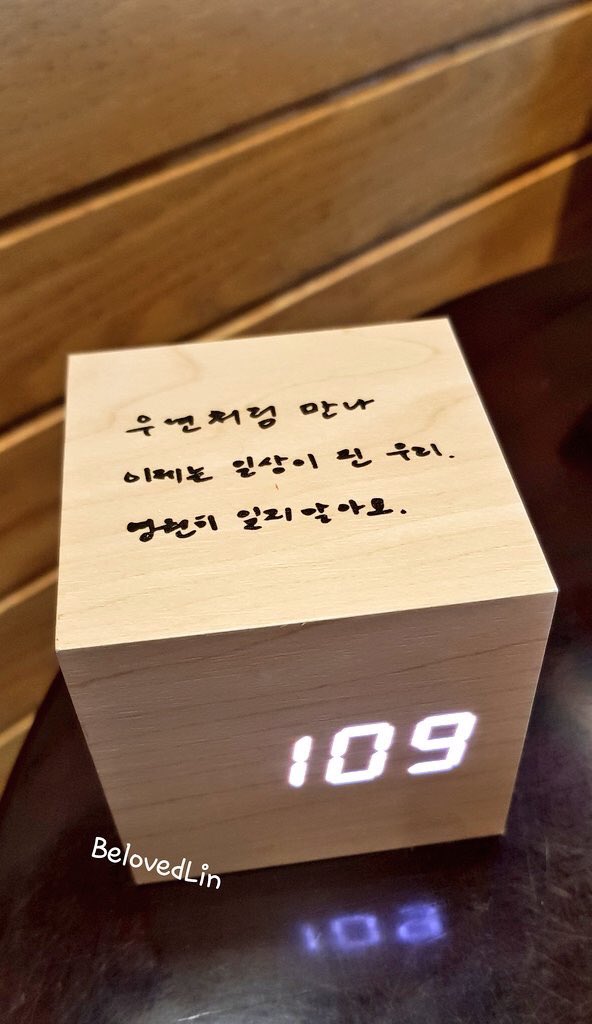 우연처럼 만나
이제는 일상이 된 우리.
영원히 잊지말아요.
109
BelovedLin